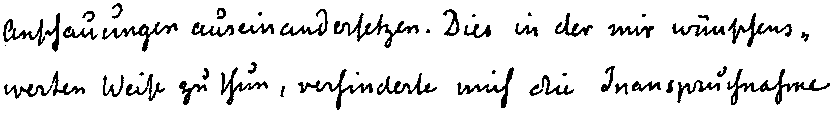 Anschauungen auseinandersetzen. Dies in der mir wünschens„
werten Weise zu thun, verhinderte mich die Inanspruchnahme